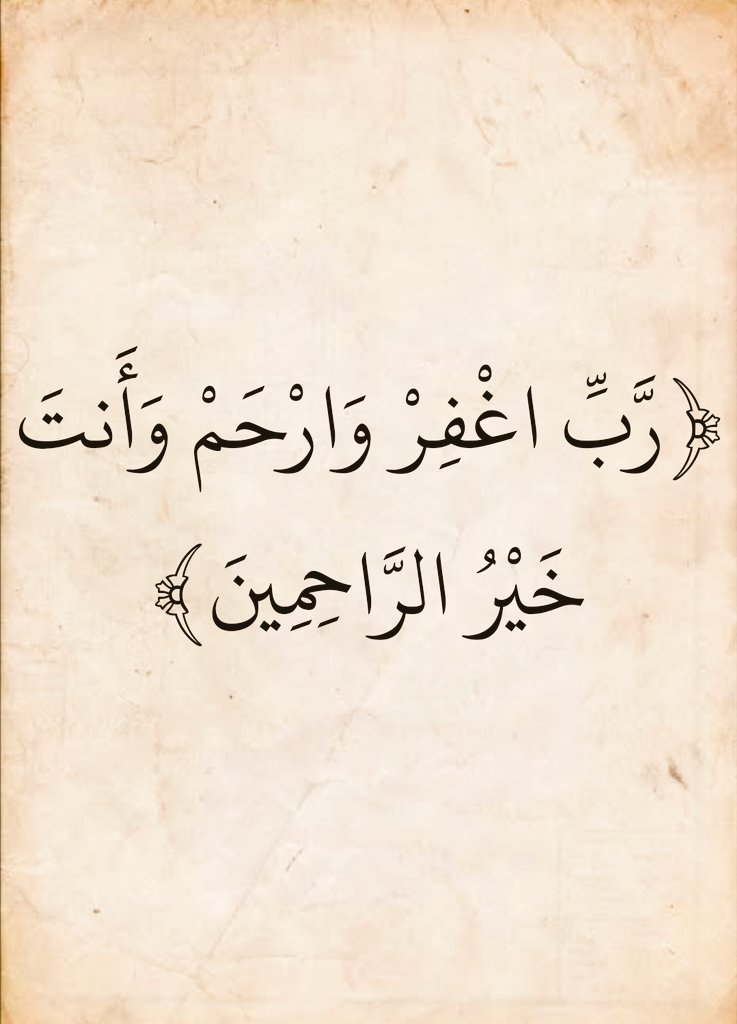 ﴿ رَّبِّ اغْفِرْ وَارْحَمْ وَأَنتَ
خَيْرُ الرَّاحِمِينَ ﴾